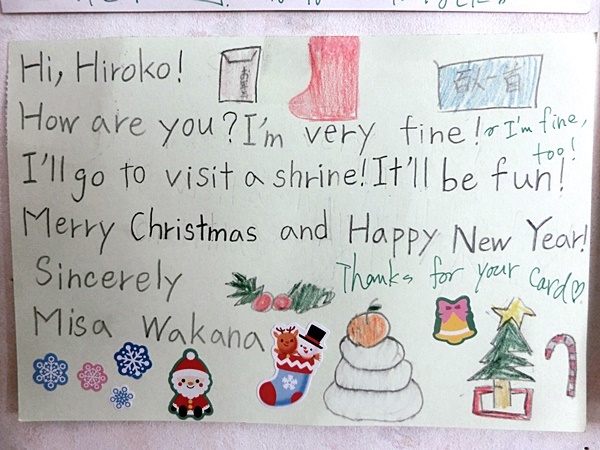 Hi, Hiroko!
お年玉
百人一首
How are you? I'm very fine!
I'm fine,
too!
I'll go to visit a shrine! It'll be fun!
Merry Christmas and Happy New Year!
Sincerely
Thanks for your card♡
Misa Wakana